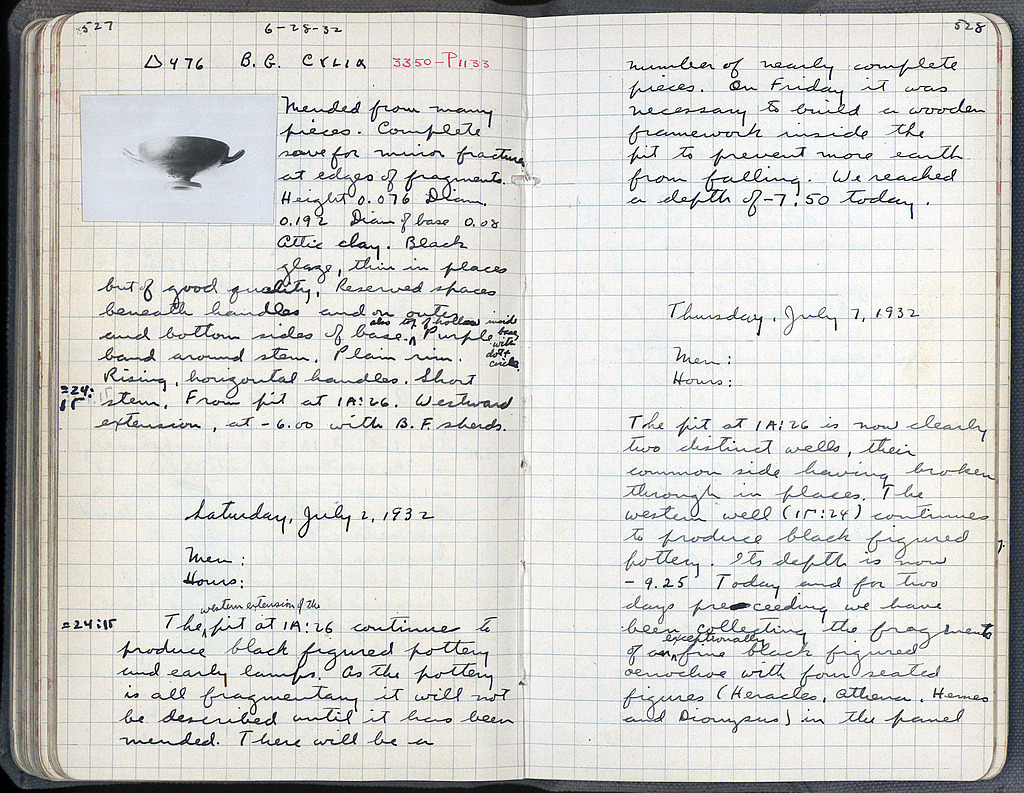 527
6-28-32
Δ476 B.G. CYLIX 3350-P1133
Mended from many
pieces. Complete
save for minor fractures
at edges of fragments.
Height 0.076 Diam.
0.192 Diam of base 0.08
Attic clay. Black
glaze, thin in places
but of good quality. Reserved spaces
beneath handles and on outer
also top of hollow inside base, with dot + circle.
and bottom sides of base. ^ Purple
band around stem. Plain rim.
Rising, horizontal handles. Short
=24:
ΙΓ
stem. From pit at ΙΑ:26. Westward
extension, at -6.00 with B.F. sherds.
Saturday, July 2, 1932
Men:
Hours:
western extension of the
=24:ΙΓ
The ^ pit at ΙΑ:26 continues to
produce black figured pottery
and early lamps. As the pottery
is all fragmentary it will not
be described until it has been
mended. There will be a
528
number of nearly complete
pieces. On Friday it was
necessary to build a wooden
framework inside the
pit to prevent more earth
from falling. We reached
a depth of -7.50 today.
Thursday, July 7, 1932
Men:
Hours:
The pit at ΙΑ:26 is now clearly
two distinct wells, their
common side having broken
through in places. The
western well (ΙΓ:24) continues
to produce black figured
pottery. Its depth is now
-9.25 Today and for two
days preceeding we have
been collecting the fragments
exceptionally
of an ^ fine black figured
oenochoe with four seated
figures (Heracles, Athena, Hermes
and Dionysus) in the panel